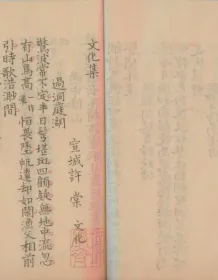 文化集
宣城許棠 文化
過洞庭湖
驚波常不定半日鬢堪斑四顧疑無地中流忽
有山鳥高一作恒畏墜帆遠却如閒漁父相前
引時歌浩渺間